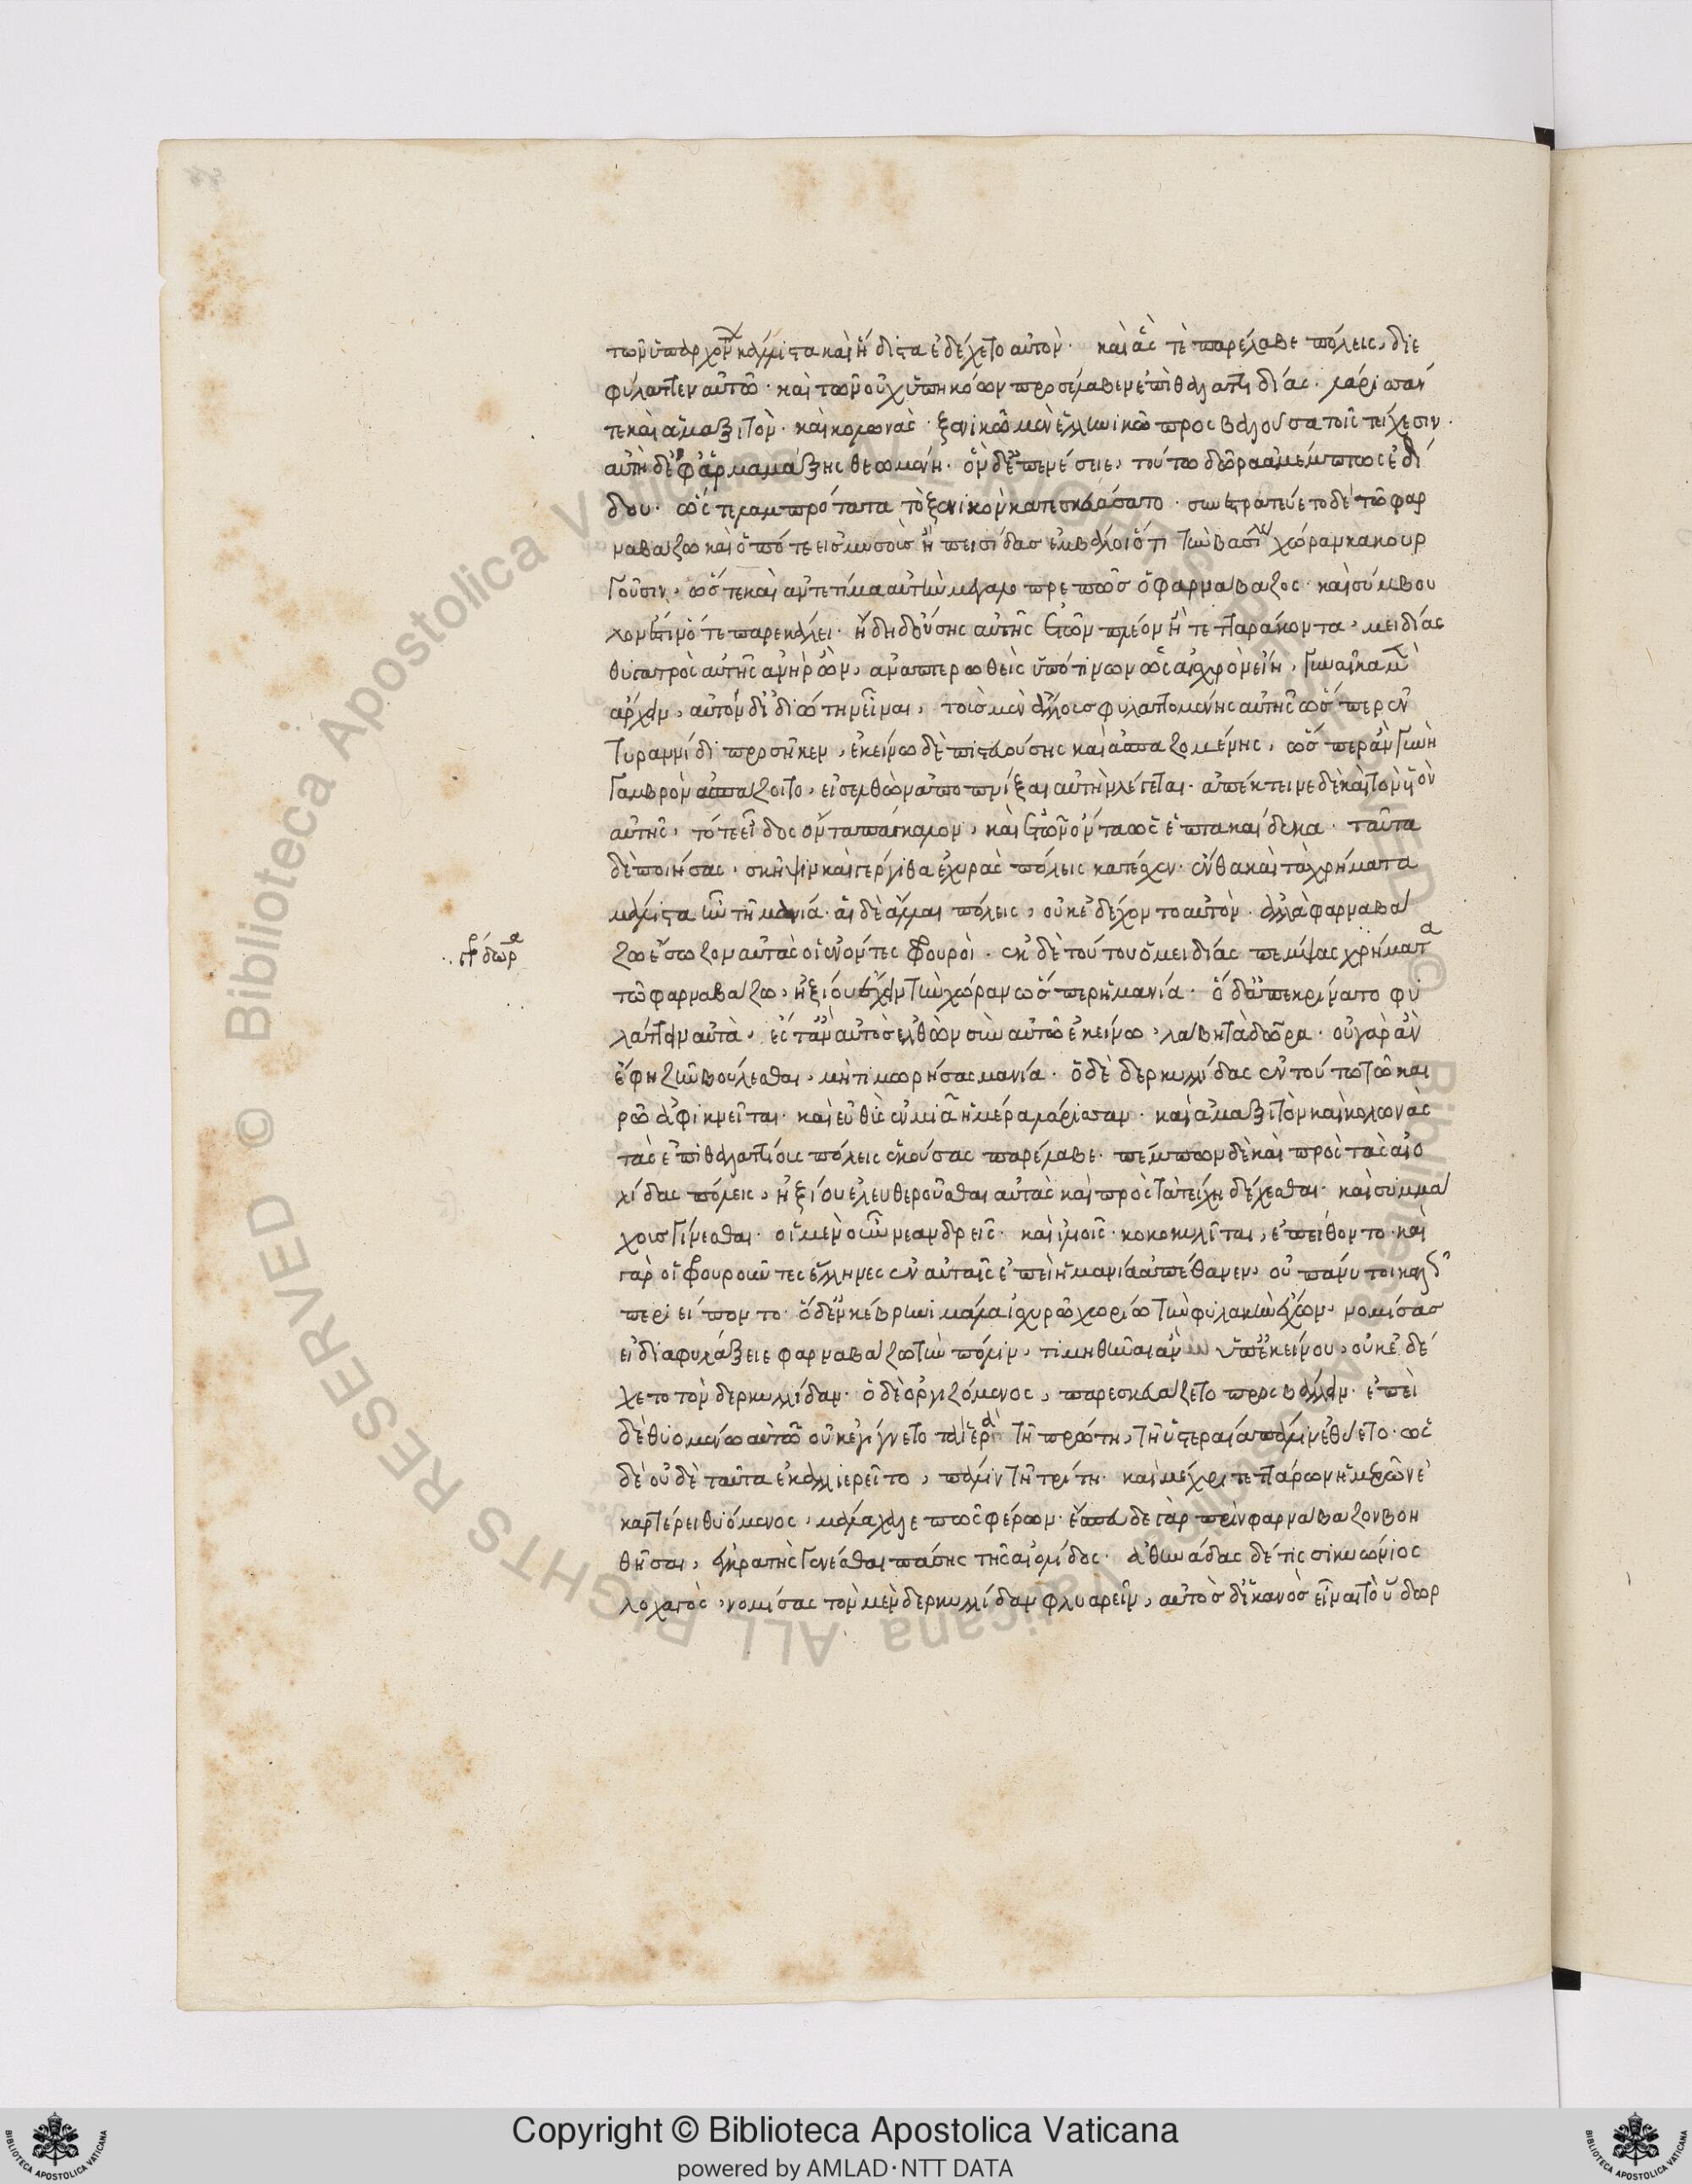 τῶν ὑπάρχων μάλιστα καὶ ἥδιστα ἐδέχετο αὐτόν· καὶ ἅς τε παρέλαβε πόλεις, διε
φύλαττεν αὐτῷ· καὶ τῶν οὐχ ὑπηκόων προσέλαβεν ἐπιθαλαττιδίας· λάρισσάν
τε καὶ ἁμαξιτόν· καὶ κολωνάς· ξενικῷ μὲν ἑλληνικῷ προσβαλοῦσα τοῖς τείχεσιν·
αὐτὴ δὲ ἐφ' ἁρμαμάξης θεωμένη· ὃν δ' ἐπαινέσειε, τούτῳ δῶρα ἀμέμπτως ἐδί
δου· ὥστε λαμπρότατα τὸ ξενικὸν κατεσκευάσατο· συνεστρατεύετο δὲ τῷ φαρ
ναβάζῳ καὶ ὁπότε εἰς μυσοὺς ἢ πεισίδας ἐμβάλοι ὅτι τὴν βασιλέως χώραν κακουρ
γοῦσιν, ὥστε καὶ ἀντετίμα αὐτὴν μεγαλοπρεπῶς ὁ φαρνάβαζος· καὶ σύμβου
λον ἔστιν ὅτε παρεκάλει· ἤδη δ' οὔσης αὐτῆς ἐτῶν πλέον ἢ τετταράκοντα, μειδίας
θυγατρὸς αὐτῆς ἀνὴρ ὤν, ἀναπτερωθεὶς ὑπό τινων ὡς αἰσχρὸν εἴη, γυναῖκα μὲν
ἄρχειν, αὐτὸν δ' ἰδιώτην εἶναι, τοὺς μὲν ἄλλους φυλαττομένης αὐτῆς ὥσπερ ἐν
τυραννίδι προσῆκεν, ἐκείνῳ δὲ πιστευούσης καὶ ἀσπαζομένης, ὥσπερ ἂν γυνὴ
γαμβρὸν ἀσπάζοιτο, εἰσελθὼν ἀποπνίξαι αὐτὴν λέγεται· ἀπέκτεινε δὲ καὶ τὸν υἱὸν
αὐτῆς, τό τε εἶδος ὄντα πάγκαλον, καὶ ἐτῶν ὄντα ὡς ἑπτακαίδεκα· ταῦτα
δὲ ποιήσας, σκῆψιν καὶ γέργιθα ἐχυρὰς πόλεις κατέσχεν· ἔνθα καὶ τὰ χρήματα
μάλιστα ἦν τῇ μανίᾳ· αἱ δὲ ἄλλαι πόλεις, οὐκ ἐδέχοντο αὐτόν· ἀλλὰ φαρναβά
ζῳ ἔσωζον αὐτὰς οἱ ἐνόντες φρουροί· ἐκ δὲ τούτου ὁ μειδίας πέμψας χρήματα
γρ δῶρα
τῷ φαρναβάζῳ, ἠξίου ἔχειν τὴν χώραν ὥσπερ ἡ μανία· ὁ δ' ἀπεκρίνατο φυ
λάττειν αὐτά, ἔς τ' ἂν αὐτὸς ἐλθὼν σὺν αὐτῷ ἐκείνῳ, λάβῃ τὰ δῶρα· οὐ γὰρ ἂν
ἔφη ζῆν βούλεσθαι, μὴ τιμωρήσας μανίᾳ· ὁ δὲ δερκυλλίδας ἐν τούτῳ τῷ και
ρῷ ἀφικνεῖται· καὶ εὐθὺς ἐν μιᾷ ἡμέρᾳ λάρισσαν· καὶ ἁμαξιτὸν καὶ κολωνὰς
τὰς ἐπιθαλαττίους πόλεις ἑκούσας παρέλαβε· πέμπων δὲ καὶ πρὸς τὰς αἰο
λίδας πόλεις, ἠξίου ἐλευθεροῦσθαι αὐτὰς καὶ πρὸς τὰ τείχη δέχεσθαι· καὶ συμμά
χους γίνεσθαι· οἱ μὲν οὖν νεανδρεῖς· καὶ ἰλιεῖς· κοκοκυλῖται, ἐπείθοντο· καὶ
γὰρ οἱ φρουροῦντες ἕλληνες ἐν αὐταῖς ἐπεὶ ἡ μανία ἀπέθανεν, οὐ πάνυ τοι καλῶς
περιείποντο· ὁ δ' ἐν κεβρῆνι μάλα ἰσχυρῷ χωρίῳ τὴν φυλακὴν ἔχων, νομίσας
εἰ διαφυλάξειε φαρναβάζῳ τὴν πόλιν, τιμηθῆναι ἂν ὑπ' ἐκείνου, οὐκ ἐδέ
χετο τὸν δερκυλλίδαν· ὁ δὲ ὀργιζόμενος, παρεσκευάζετο προσβάλλειν· ἐπεὶ
δὲ θυομένῳ αὐτῷ οὐκ ἐγίγνετο τὰ ἱερὰ τῇ πρώτῃ, τῇ ὑστεραίᾳ πάλιν ἐθύετο· ὡς
δὲ οὐδὲ ταῦτα ἐκαλλιερεῖτο, πάλιν τῇ τρίτῃ· καὶ μέχρι τεττάρων ἡμερῶν ἐ
καρτέρει θυόμενος, μάλα χαλεπῶς φέρων· ἔσπευδε γὰρ πρὶν φαρνάβαζον βοη
θῆσαι, ἐγκρατὴς γενέσθαι πάσης τῆς αἰολίδος· ἀθηνάδας δέ τις σικυώνιος
λοχαγός, νομίσας τὸν μὲν δερκυλλίδαν φλυαρεῖν, αὐτὸς δ' ἱκανὸς εἶναι τὸ ὕδωρ
Copyright © Biblioteca Apostolica Vaticana
powered by AMLAD·NTT DATA